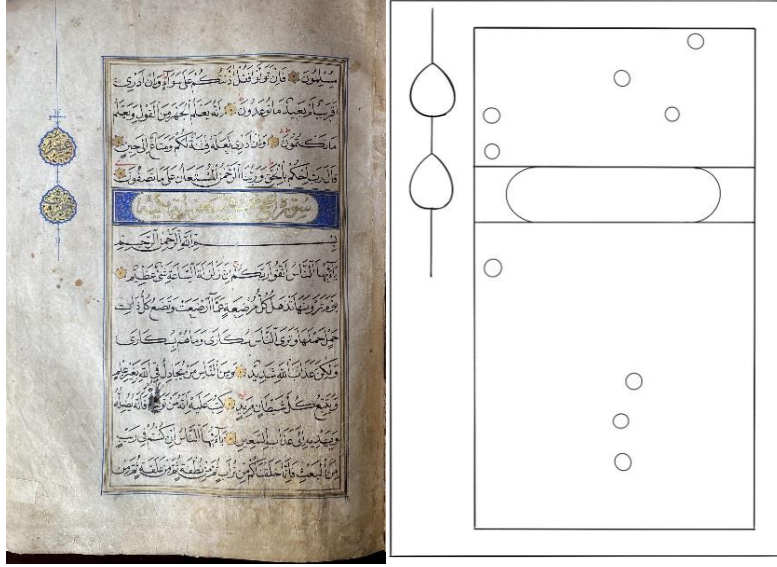 مُسْلِمُونَ فَإِن تَوَلَّوْا فَقُلْ آذَنتُكُمْ عَلَى سَوَاءٍ وَإِنْ أَدْرِى
أَقَرِيبٌ أَم بَعِيدٌ مَا تُوعَدُونَ إِنَّهُ يَعْلَمُ الْجَهْرَ مِنَ الْقَوْلِ وَيَعْلَمُ
مَا تَكْتُمُونَ وَإِنْ أَدْرِى لَعَلَّهُ فِتْنَةٌ لَكُمْ وَمَتَاعٌ إِلَى حِينٍ
قَالَ رَبِّ احْكُم بِالْحَقِّ وَرَبُّنَا الرَّحْمَنُ الْمُسْتَعَانُ عَلَى مَا تَصِفُونَ
سورة الحج
بِسْمِ اللَّهِ الرَّحْمَنِ الرَّحِيمِ
يَا أَيُّهَا النَّاسُ اتَّقُوا رَبَّكُمْ إِنَّ زَلْزَلَةَ السَّاعَةِ شَىْءٌ عَظِيمٌ
يَوْمَ تَرَوْنَهَا تَذْهَلُ كُلُّ مُرْضِعَةٍ عَمَّا أَرْضَعَتْ وَتَضَعُ كُلُّ ذَاتِ
حَمْلٍ حَمْلَهَا وَتَرَى النَّاسَ سُكَارَى وَمَا هُم بِسُكَارَى
وَلَكِنَّ عَذَابَ اللَّهِ شَدِيدٌ وَمِنَ النَّاسِ مَن يُجَادِلُ فِى اللَّهِ بِغَيْرِ عِلْمٍ
وَيَتَّبِعُ كُلَّ شَيْطَانٍ مَرِيدٍ كُتِبَ عَلَيْهِ أَنَّهُ مَن تَوَلَّاهُ فَأَنَّهُ يُضِلُّهُ
وَيَهْدِيهِ إِلَى عَذَابِ السَّعِيرِ يَا أَيُّهَا النَّاسُ إِن كُنتُمْ فِى رَيْبٍ
مِنَ الْبَعْثِ فَإِنَّا خَلَقْنَاكُم مِن تُرَابٍ ثُمَّ مِن نُطْفَةٍ ثُمَّ مِنْ عَلَقَةٍ ثُمَّ مِن